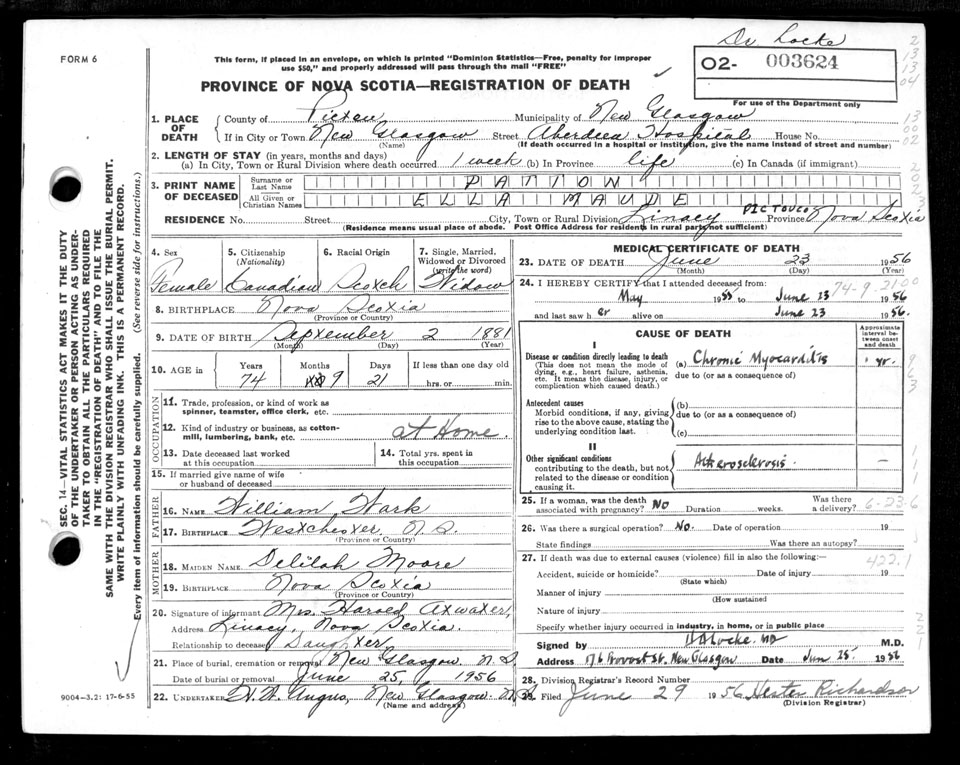 Dr Locke
FORM 6
This form, if placed in an envelope, on which is printed "Dominion Statistics—Free, penalty for improper
use $50," and properly addressed will pass through the mail "FREE"
O2- 003624
For use of the Department only
PROVINCE OF NOVA SCOTIA—REGISTRATION OF DEATH
1. PLACE OF DEATH
County of Pictou, Municipality of New Glasgow
If in City or Town New Glasgow Street Aberdeen Hospital House No.
(Name) (If death occurred in a hospital or institution, give the name instead of street and number)
2. LENGTH OF STAY (in years, months and days)
(a) In City, Town or Rural Division where death occurred 1 week (b) In Province life (c) In Canada (if immigrant)
3. PRINT NAME OF DECEASED
Surname or Last Name PATTON
All Given or Christian Names ELLA MAUDE
RESIDENCE No. Street City, Town or Rural Division Linacy PICTOU CO Province Nova Scotia
(Residence means usual place of abode. Post Office Address for residents in rural parts not sufficient)
4. Sex
Female
5. Citizenship
(Nationality)
Canadian
6. Racial Origin
Scotch
7. Single, Married, Widowed or Divorced
(write the word)
Widow
8. BIRTHPLACE Nova Scotia
(Province or Country)
9. DATE OF BIRTH September 2 1881
(Month) (Day) (Year)
10. AGE in
Years Months Days If less than one day old
74 9 21 hrs. or min.
OCCUPATION
11. Trade, profession, or kind of work as
spinner, teamster, office clerk, etc.
12. Kind of industry or business, as cotton-
mill, lumbering, bank, etc. at Home.
13. Date deceased last worked
at this occupation
14. Total yrs. spent in
this occupation
15. If married give name of wife
or husband of deceased
FATHER
16. NAME William Wark
17. BIRTHPLACE Westchester N.S.
(Province or Country)
MOTHER
18. MAIDEN NAME Delilah Moore
19. BIRTHPLACE Nova Scotia
(Province or Country)
20. Signature of informant Mrs. Harold Atwater,
Address Linacy, Nova Scotia.
Relationship to deceased Daughter
21. Place of burial, cremation or removal New Glasgow N.S.
Date of burial or removal June 25, 1956
22. UNDERTAKER H.W. Angus, New Glasgow N.S.
(Name and address)
MEDICAL CERTIFICATE OF DEATH
23. DATE OF DEATH June 23 1956
(Month) (Day) (Year)
24. I HEREBY CERTIFY that I attended deceased from:
74-9.2100
May 1955 to June 23 1956
and last saw her alive on June 23 1956.
CAUSE OF DEATH
Approximate interval between onset and death
I
Disease or condition directly leading to death
(This does not mean the mode of
dying, e.g., heart failure, asthenia,
etc. It means the disease, injury, or
complication which caused death.)
(a) Chronic Myocarditis yr.
due to (or as a consequence of)
Antecedent causes
Morbid conditions, if any, giving
rise to the above cause, stating the
underlying condition last.
(b)
due to (or as a consequence of)
(c)
II
Other significant conditions
contributing to the death, but not
related to the disease or condition
causing it.
Atherosclerosis. —
25. If a woman, was the death
associated with pregnancy? No Duration weeks. Was there a delivery?
6-23-6
26. Was there a surgical operation? No. Date of operation 19
State findings Was there an autopsy?
27. If death was due to external causes (violence) fill in also the following:—
422.1
Accident, suicide or homicide? Date of injury 19
(State which)
Manner of injury
(How sustained
Nature of injury
Specify whether injury occurred in industry, in home, or in public place
Signed by Locke MD M.D.
Address 176 Provost St. New Glasgow Date Jun 25 1956
28. Division Registrar's Record Number
29. Filed June 29 1956 Hester Richardson
(Division Registrar)
SEC. 14—VITAL STATISTICS ACT MAKES IT THE DUTY
OF THE UNDERTAKER OR PERSON ACTING AS UNDER-
TAKER TO OBTAIN ALL THE PARTICULARS REQUIRED
IN THE "REGISTRATION OF DEATH" AND TO FILE THE
SAME WITH THE DIVISION REGISTRAR WHO SHALL ISSUE THE BURIAL PERMIT.
WRITE PLAINLY WITH UNFADING INK. THIS IS A PERMANENT RECORD.
Every item of information should be carefully supplied. (See reverse side for instructions.)
9004-3.2: 17-6-55